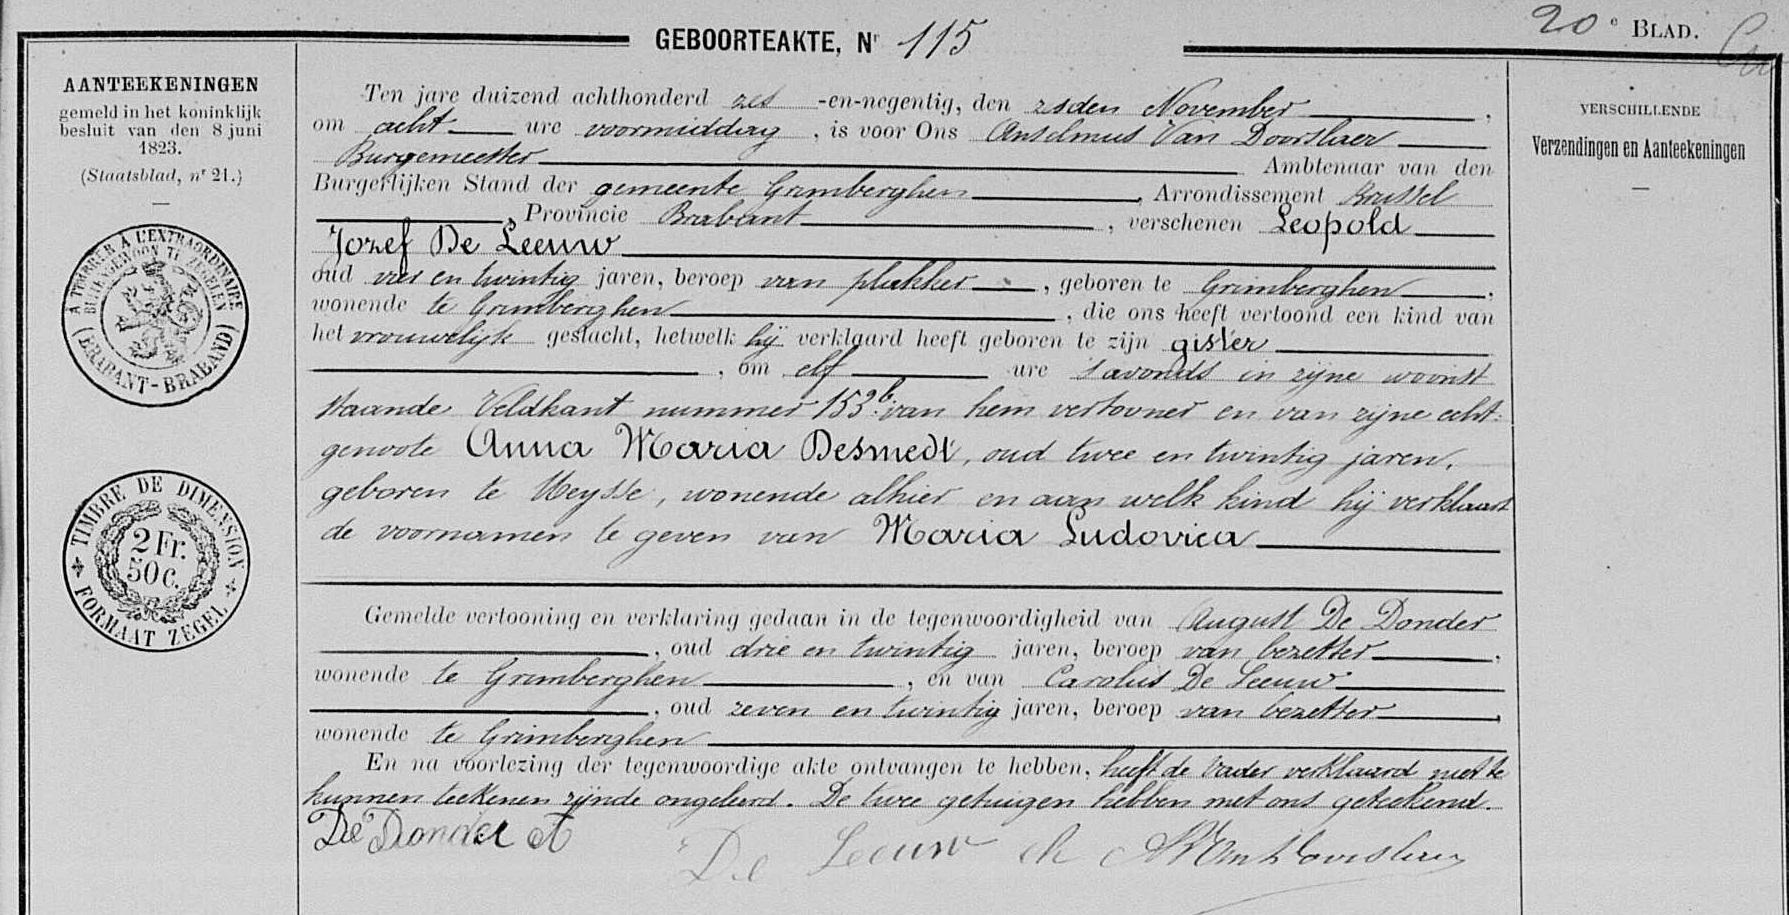 GEBOORTEAKTE, Nr 115
20e BLAD.
AANTEEKENINGEN
gemeld in het koninklijk
besluit van den 8 juni
1823.
(Staatsblad, nr 21.)
A TIMBRER A L'EXTRAORDINAIRE
BUITENGEWOON TE ZEGELEN
(BRABANT-BRABAND)
TIMBRE DE DIMENSION
2 Fr.
50 C.
FORMAAT ZEGEL
Ten jare duizend achthonderd zes -en-negentig, den zesden November,
om acht ure voormiddag, is voor Ons Anselmus Van Doorslaer
Burgemeester Ambtenaar van den
Burgerlijken Stand der gemeente Grimberghen, Arrondissement Brussel
, Provincie Brabant, verschenen Leopold
Jozef De Leeuw
oud vier en twintig jaren, beroep van plakker, geboren te Grimberghen,
wonende te Grimberghen, die ons heeft vertoond een kind van
het vrouwelijk geslacht, hetwelk hij verklaard heeft geboren te zijn gister
, om elf ure 's avonds in zijne woonst
staande Veldkant nummer 153b. van hem vertooner en van zijne echt-
genoote Anna Maria Desmedt, oud twee en twintig jaren,
geboren te Meysse, wonende alhier en aan welk kind hij verklaart
de voornamen te geven van Maria Ludovica
Gemelde vertooning en verklaring gedaan in de tegenwoordigheid van August De Donder
, oud drie en twintig jaren, beroep van bezetter,
wonende te Grimberghen, en van Carolus De Leeuw
, oud zeven en twintig jaren, beroep van bezetter,
wonende te Grimberghen
En na voorlezing der tegenwoordige akte ontvangen te hebben, heeft de vader verklaard niet te
kunnen teekenen zijnde ongeleerd. De twee getuigen hebben met ons geteekend.
De Donder A
De Leeuw ch A Van Doorslaer
VERSCHILLENDE
Verzendingen en Aanteekeningen